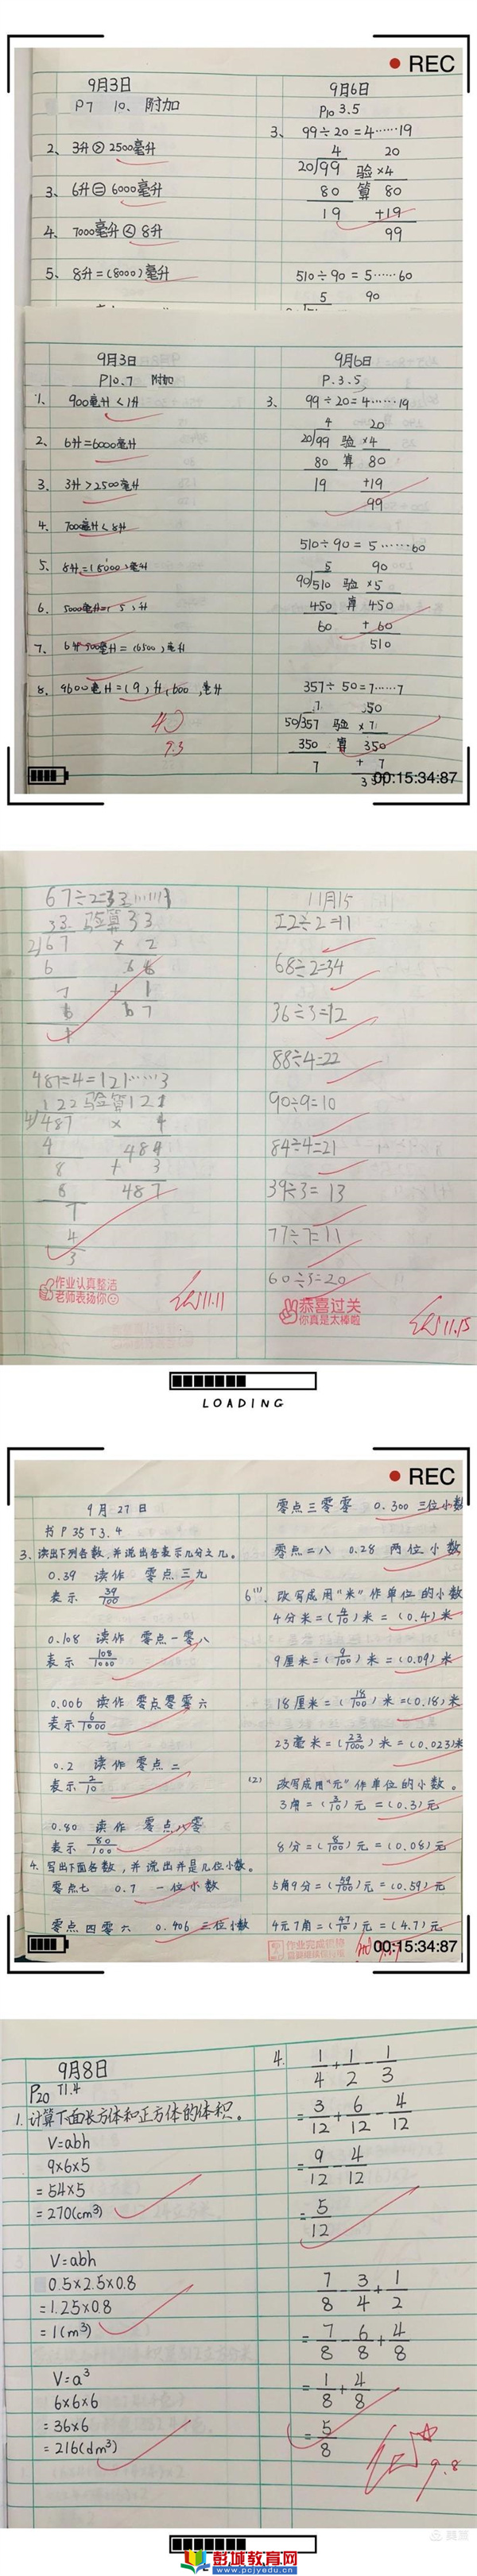 REC
9月3日
P7 10、附加
2、3升>2500毫升
3、6升=6000毫升
4、7000毫升<8升
5、8升=(8000)毫升
9月6日
P10 3.5
3、99÷20=4……19
4 20
20/99 验 ×4
80 算 80
19 +19
99
510÷90=5……60
5 90
9月3日
P10.7 附加
1. 900毫升<1升
2、6升=6000毫升
3. 3升>2500毫升
4. 7000毫升<8升
5、8升=(8000)毫升
6. 5000毫升=(5)升
7. 6升500毫升=(6500)毫升
8. 9600毫升=(9)升(600)毫升
40
9.3
9月6日
P.3.5
3. 99÷20=4……19
4 20
20/99 验 ×4
80 算 80
19 +19
99
510÷90=5……60
5 90
90/510 验 ×5
450 算 450
60 +60
510
357÷50=7……7
7 50
50/357 验 ×7
350 算 350
7 +7
357
00:15:34:87
67÷2=33……1
33 验算 33
2/67 × 2
6 66
7 + 1
6 67
1
487÷4=121……3
122 验算 121
4/487 × 4
4 484
8 + 3
8 487
7
4
3
作业认真整洁
老师表扬你
11.11
11月15
22÷2=11
68÷2=34
36÷3=12
88÷4=22
90÷9=10
84÷4=21
39÷3=13
77÷7=11
60÷3=20
恭喜过关
你真是太棒啦
11.15
LOADING
REC
9月27日
书P35 T3.4
3、读出下列各数,并说出各表示几分之几。
0.39 读作 零点三九
表示 39/100
0.108 读作 零点一零八
表示 108/1000
0.006 读作 零点零零六
表示 6/1000
0.2 读作 零点二
表示 2/10
0.80 读作 零点八零
表示 80/100
4. 写出下面各数,并说出并是几位小数。
零点七 0.7 一位小数
零点四零六 0.406 三位小数
零点三零零 0.300 三位小数
零点二八 0.28 两位小数
6(1). 改写成用"米"作单位的小数
4分米=(4/10)米=(0.4)米
9厘米=(9/100)米=(0.09)米
18厘米=(18/100)米=(0.18)米
23毫米=(23/1000)米=(0.023)米
(2) 改写成用"元"作单位的小数。
3角=(3/10)元=(0.3)元
8分=(8/100)元=(0.08)元
5角9分=(59/100)元=(0.59)元
4元7角=(47/10)元=(4.7)元
00:15:34:87
9月8日
P20 T1.4
1.计算下面长方体和正方体的体积。
V=abh
9×6×5
=54×5
=270(cm³)
V=abh
0.5×2.5×0.8
=1.25×0.8
=1(m³)
V=a³
6×6×6
=36×6
=216(dm³)
4. 1/4+1/2-1/3
=3/12+6/12-4/12
=9/12-4/12
=5/12
7/8-3/4+1/2
=7/8-6/8+4/8
=1/8+4/8
=5/8
9.8
美篇
彭城教育网
www.pcjyedu.cn